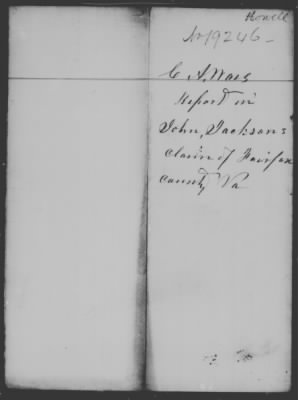 Howell
No 19246
C A, Ware
Report in
John, Jacksons
claim of Fairfax
county Va